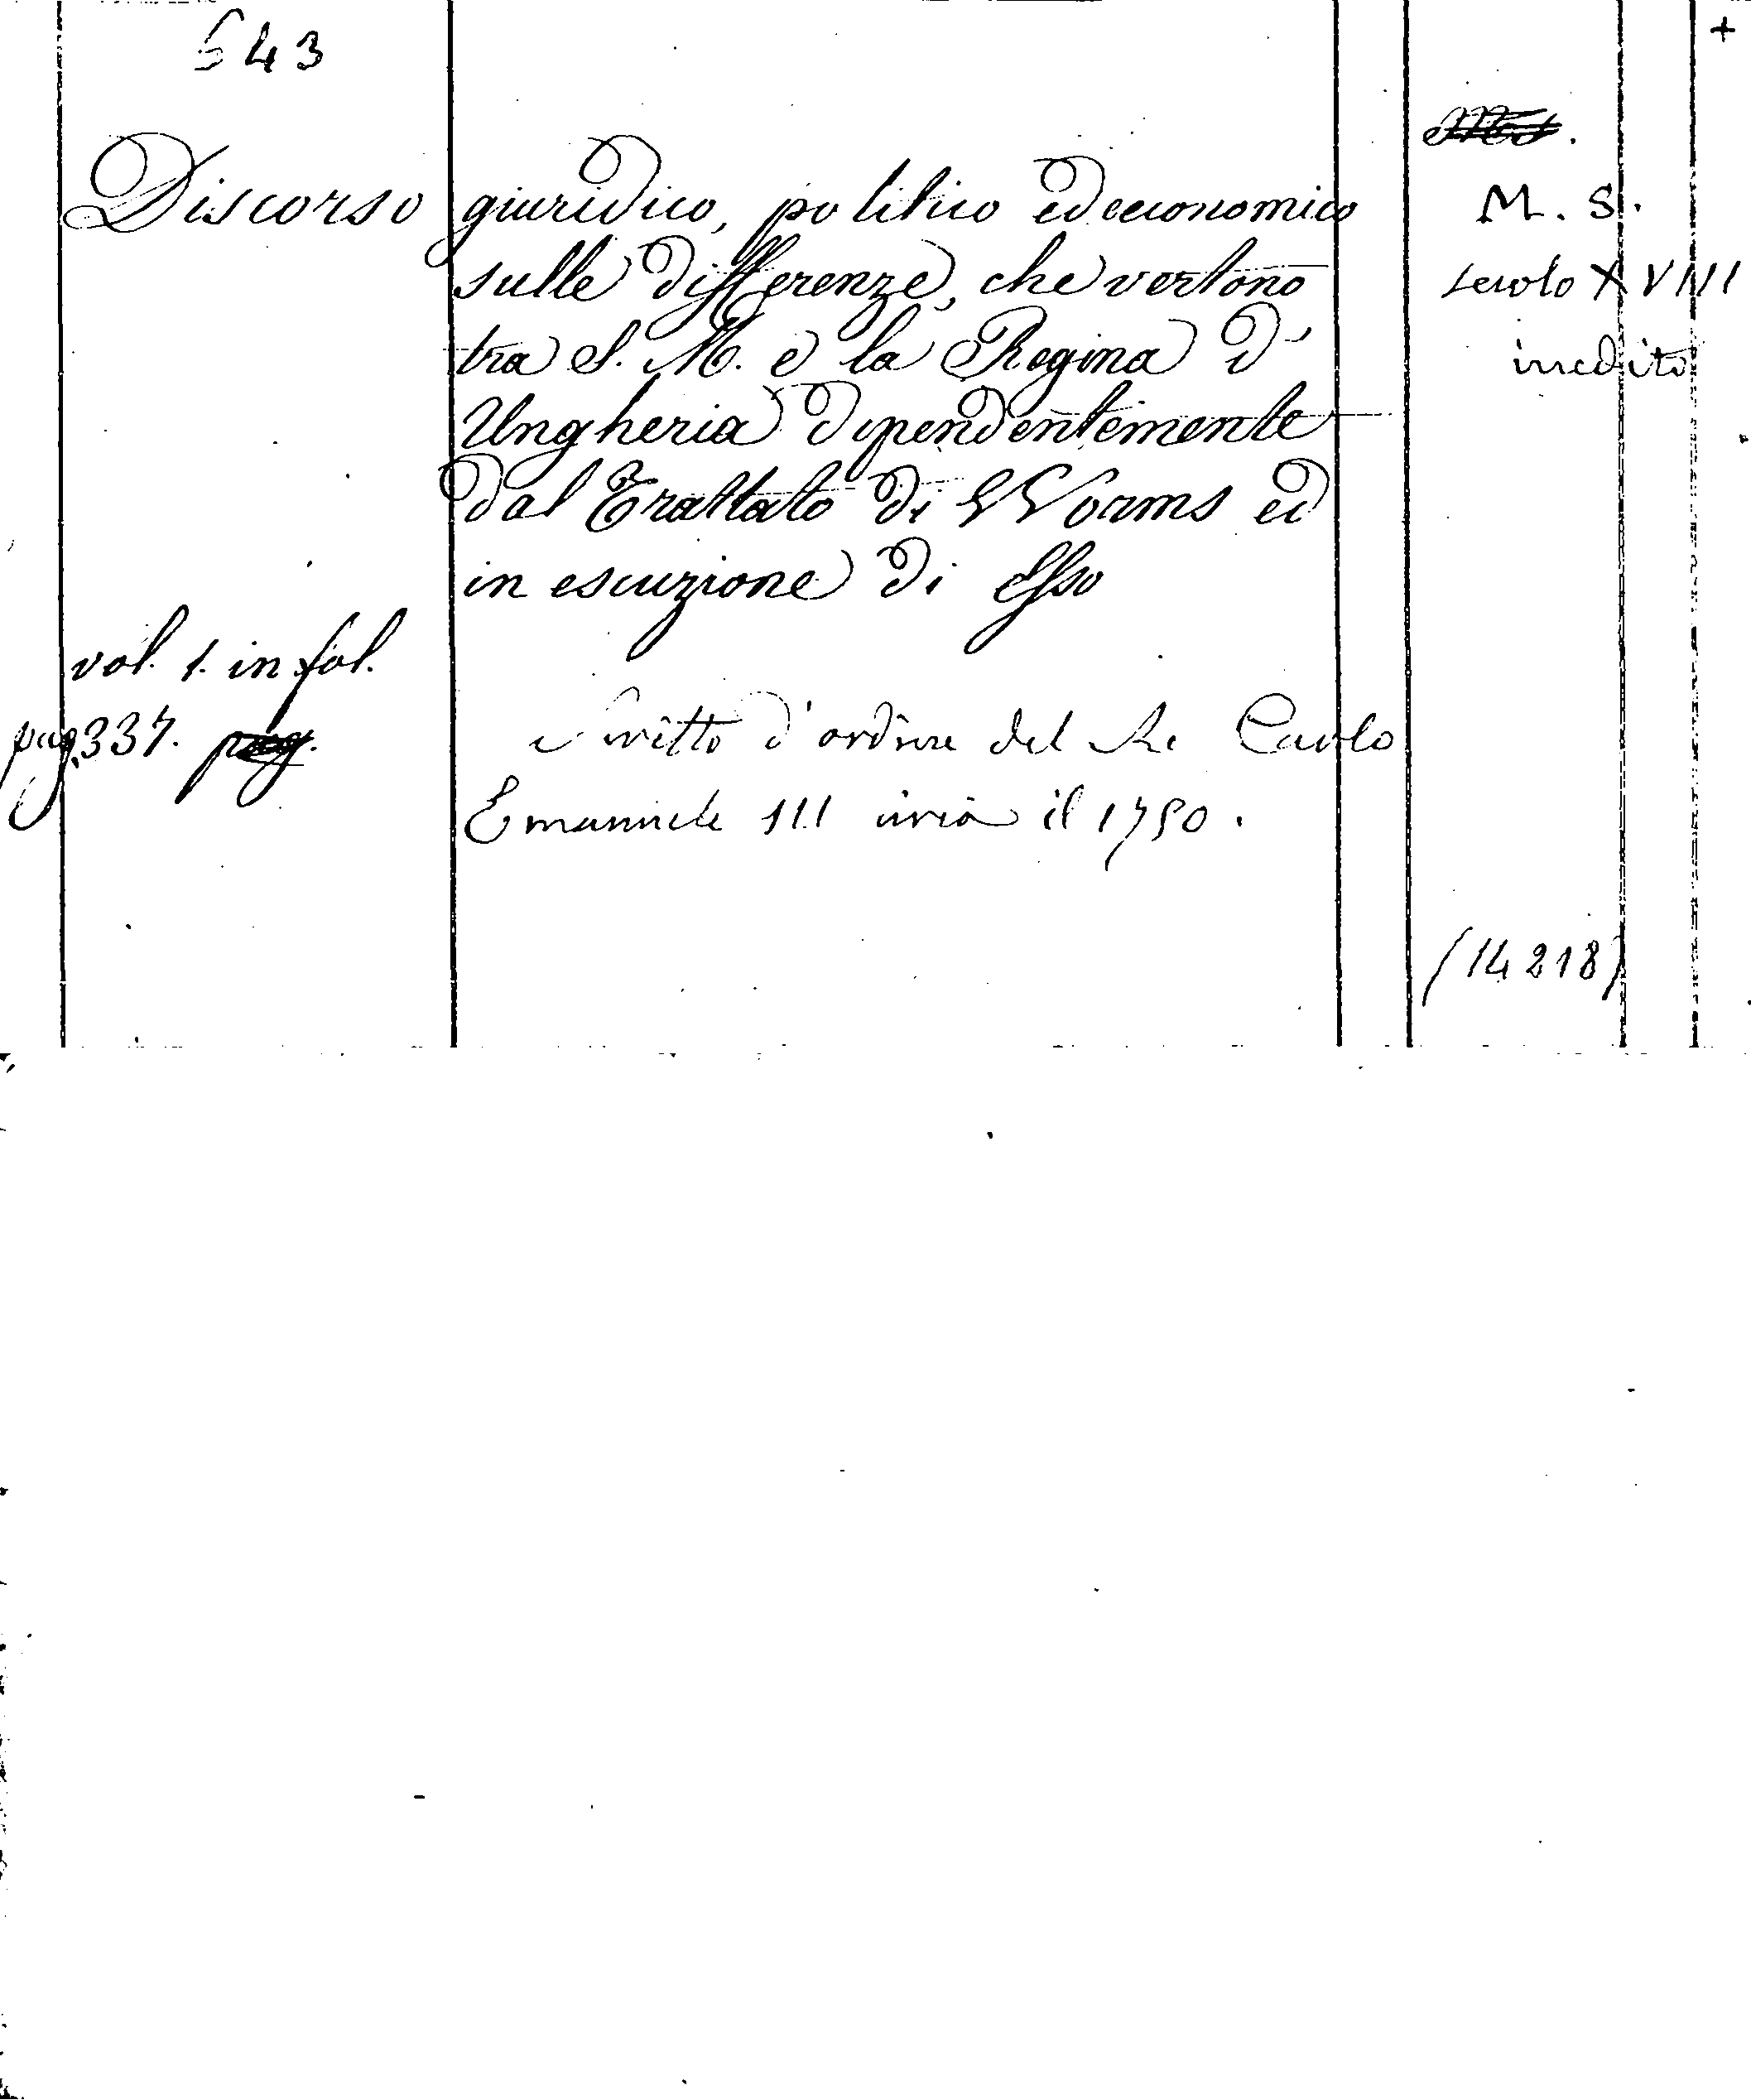 543 +
Discorso giuridico, politico ed economico M. S.
sulle differenze, che vertono secolo XVIII
tra S. M. e la Regina d' inedito
Ungheria dipendentemente
dal Trattato di Worms ed
in escuzione di esso
vol. 1. in fol.
pag. 337. pag. Scritto d'ordine del Re Carlo
Emanuele III circa il 1750.
(14218)